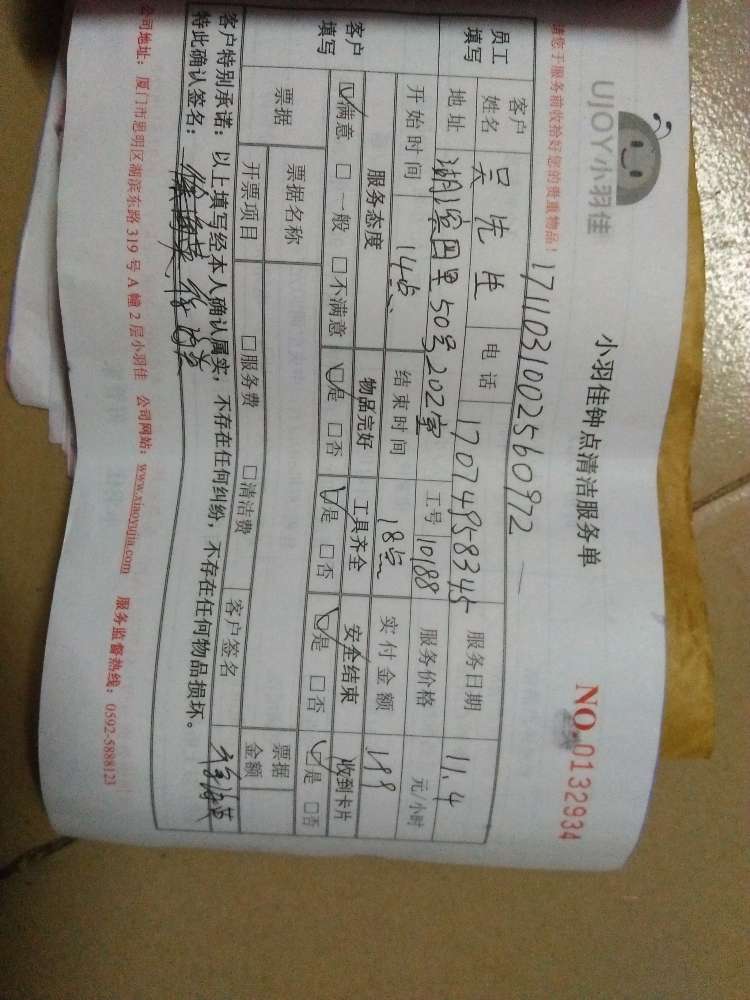 UJOY小羽佳
小羽佳钟点清洁服务单
NO.0132934
请您于服务前收拾好您的贵重物品!
1711031002560972
员工填写 客户姓名 吴先生 电话 17074958345 服务日期 11.4
地址 湖滨四里50号202室 工号 10188 服务价格 元/小时
开始时间 14点 结束时间 18点 实付金额 199
客户填写 服务态度 物品完好 工具齐全 安全结束 收到卡片
☑满意 □一般 □不满意 ☑是 □否 ☑是 □否 ☑是 □否 ☑是 □否
票据 票据名称 票据金额
开票项目 □服务费 □清洁费 客户签名
客户特别承诺:以上填写经本人确认属实,不存在任何纠纷,不存在任何物品损坏。
特此确认签名:
公司地址:厦门市思明区湖滨东路319号A幢2层小羽佳 公司网站:www.xiaoyujia.com 服务监督热线:0592-5888123